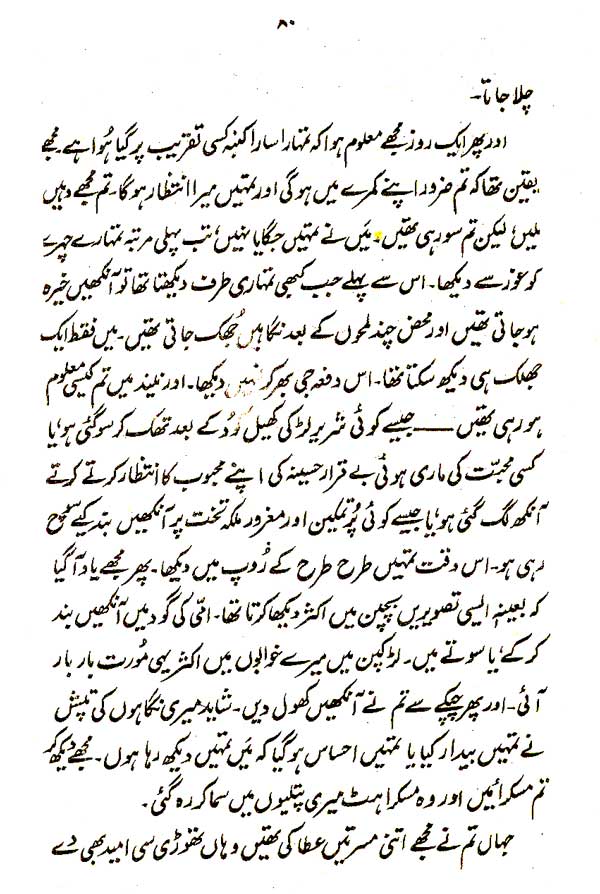 ۸۰
چلا جاتا۔
اور پھر ایک روز مجھے معلوم ہوا کہ تمہارا سارا کنبہ کسی تقریب پر گیا ہُوا ہے۔ مجھے
یقین تھا کہ تم ضرور اپنے کمرے میں ہو گی اور تمہیں میرا انتظار ہو گا۔ تم مجھے وہیں
ملیں، لیکن تم سو رہی تھیں۔ میَں نے تمہیں جگایا نہیں، تب پہلی مرتبہ تمہارے چہرے
کو غور سے دیکھا۔ اس سے پہلے جب کبھی تمہاری طرف دیکھتا تھا تو آنکھیں خیرہ
ہو جاتی تھیں اور محض چند لمحوں کے بعد نگاہیں جُھک جاتی تھیں۔ میں فقط ایک
جھلک ہی دیکھ سکتا تھا۔ اس دفعہ جی بھر کر نہیں دیکھا۔ اور نیند میں تم کیسی معلوم
ہو رہی تھیں ـــــ جیسے کوئی شریر لڑکی کھیل کُود کے بعد تھک کر سو گئی ہو، یا
کسی محبّت کی ماری ہوئی بے قرار حسینہ کی اپنے محبوب کا انتظار کرتے کرتے
آنکھ لگ گئی ہو، یا جیسے کوئی پُر تمکین اور مغرور ملکہ تخت پر آنکھیں بند کیے سوچ
رہی ہو۔ اس وقت تمہیں طرح طرح کے رُوپ میں دیکھا۔ پھر مجھے یاد آ گیا
کہ بعینہٖ ایسی تصویریں بچپن میں اکثر دیکھا کرتا تھا۔ امّی کی گود میں آنکھیں بند
کر کے، یا سوتے میں۔ لڑکپن میں میرے خوابوں میں اکثر یہی مُورت بار بار
آئی۔ اور پھر چپکے سے تم نے آنکھیں کھول دیں۔ شاید میری نگاہوں کی تپش
نے تمہیں بیدار کیا یا تمہیں احساس ہو گیا کہ میَں تمہیں دیکھ رہا ہوں۔ مجھے دیکھ کر
تم مسکرائیں اور وہ مسکراہٹ میری پتلیوں میں سما کر رہ گئی۔
جہاں تم نے مجھے اتنی مسرتیں عطا کی تھیں وہاں تھوڑی سی امید بھی دے